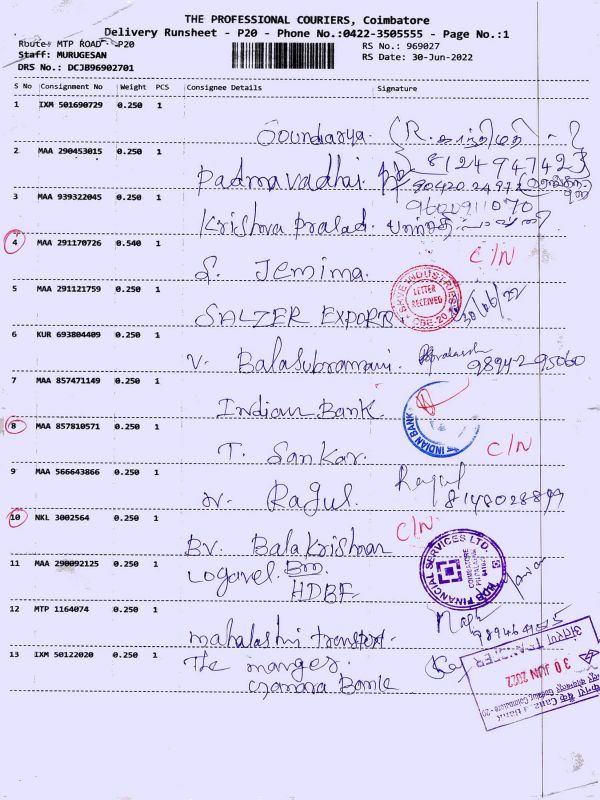 THE PROFESSIONAL COURIERS, Coimbatore
Delivery Runsheet - P20 - Phone No.:0422-3505555 - Page No.:1
Route: MTP ROAD - P20
Staff: MURUGESAN
DRS No.: DCJB96902701
RS No.: 969027
RS Date: 30-Jun-2022
S No Consignment No Weight PCS Consignee Details Signature
1 IXM 501690729 0.250 1
Soundarya.
2 MAA 290453015 0.250 1
Padmavadhai. 8124947423
3 MAA 939322045 0.250 1
Krishna Prasad. 9600911070
4 MAA 291170726 0.540 1 C/N
S. Jemima.
5 MAA 291121759 0.250 1
SALZER EXPORTS LETTER RECEIVED CBE-20 30/06/22
6 KUR 693804409 0.250 1
V. Balasubramani. 98942-95060
7 MAA 857471149 0.250 1
Indian Bank. INDIAN BANK
8 MAA 857810571 0.250 1 C/N
T. Sankar.
9 MAA 566643866 0.250 1
N. Ragul. Ragul 8148028899
10 NKL 3002564 0.250 1 C/N
BV. Balakrishnan
11 MAA 290092125 0.250 1
Logavel. Bm HDB FINANCIAL SERVICES LTD.
HDBF
12 MTP 1164074 0.250 1
mahalashmi transport.
13 IXM 50122020 0.250 1
The manger.
canara Bank
TRANSFER
30 JUN 2022